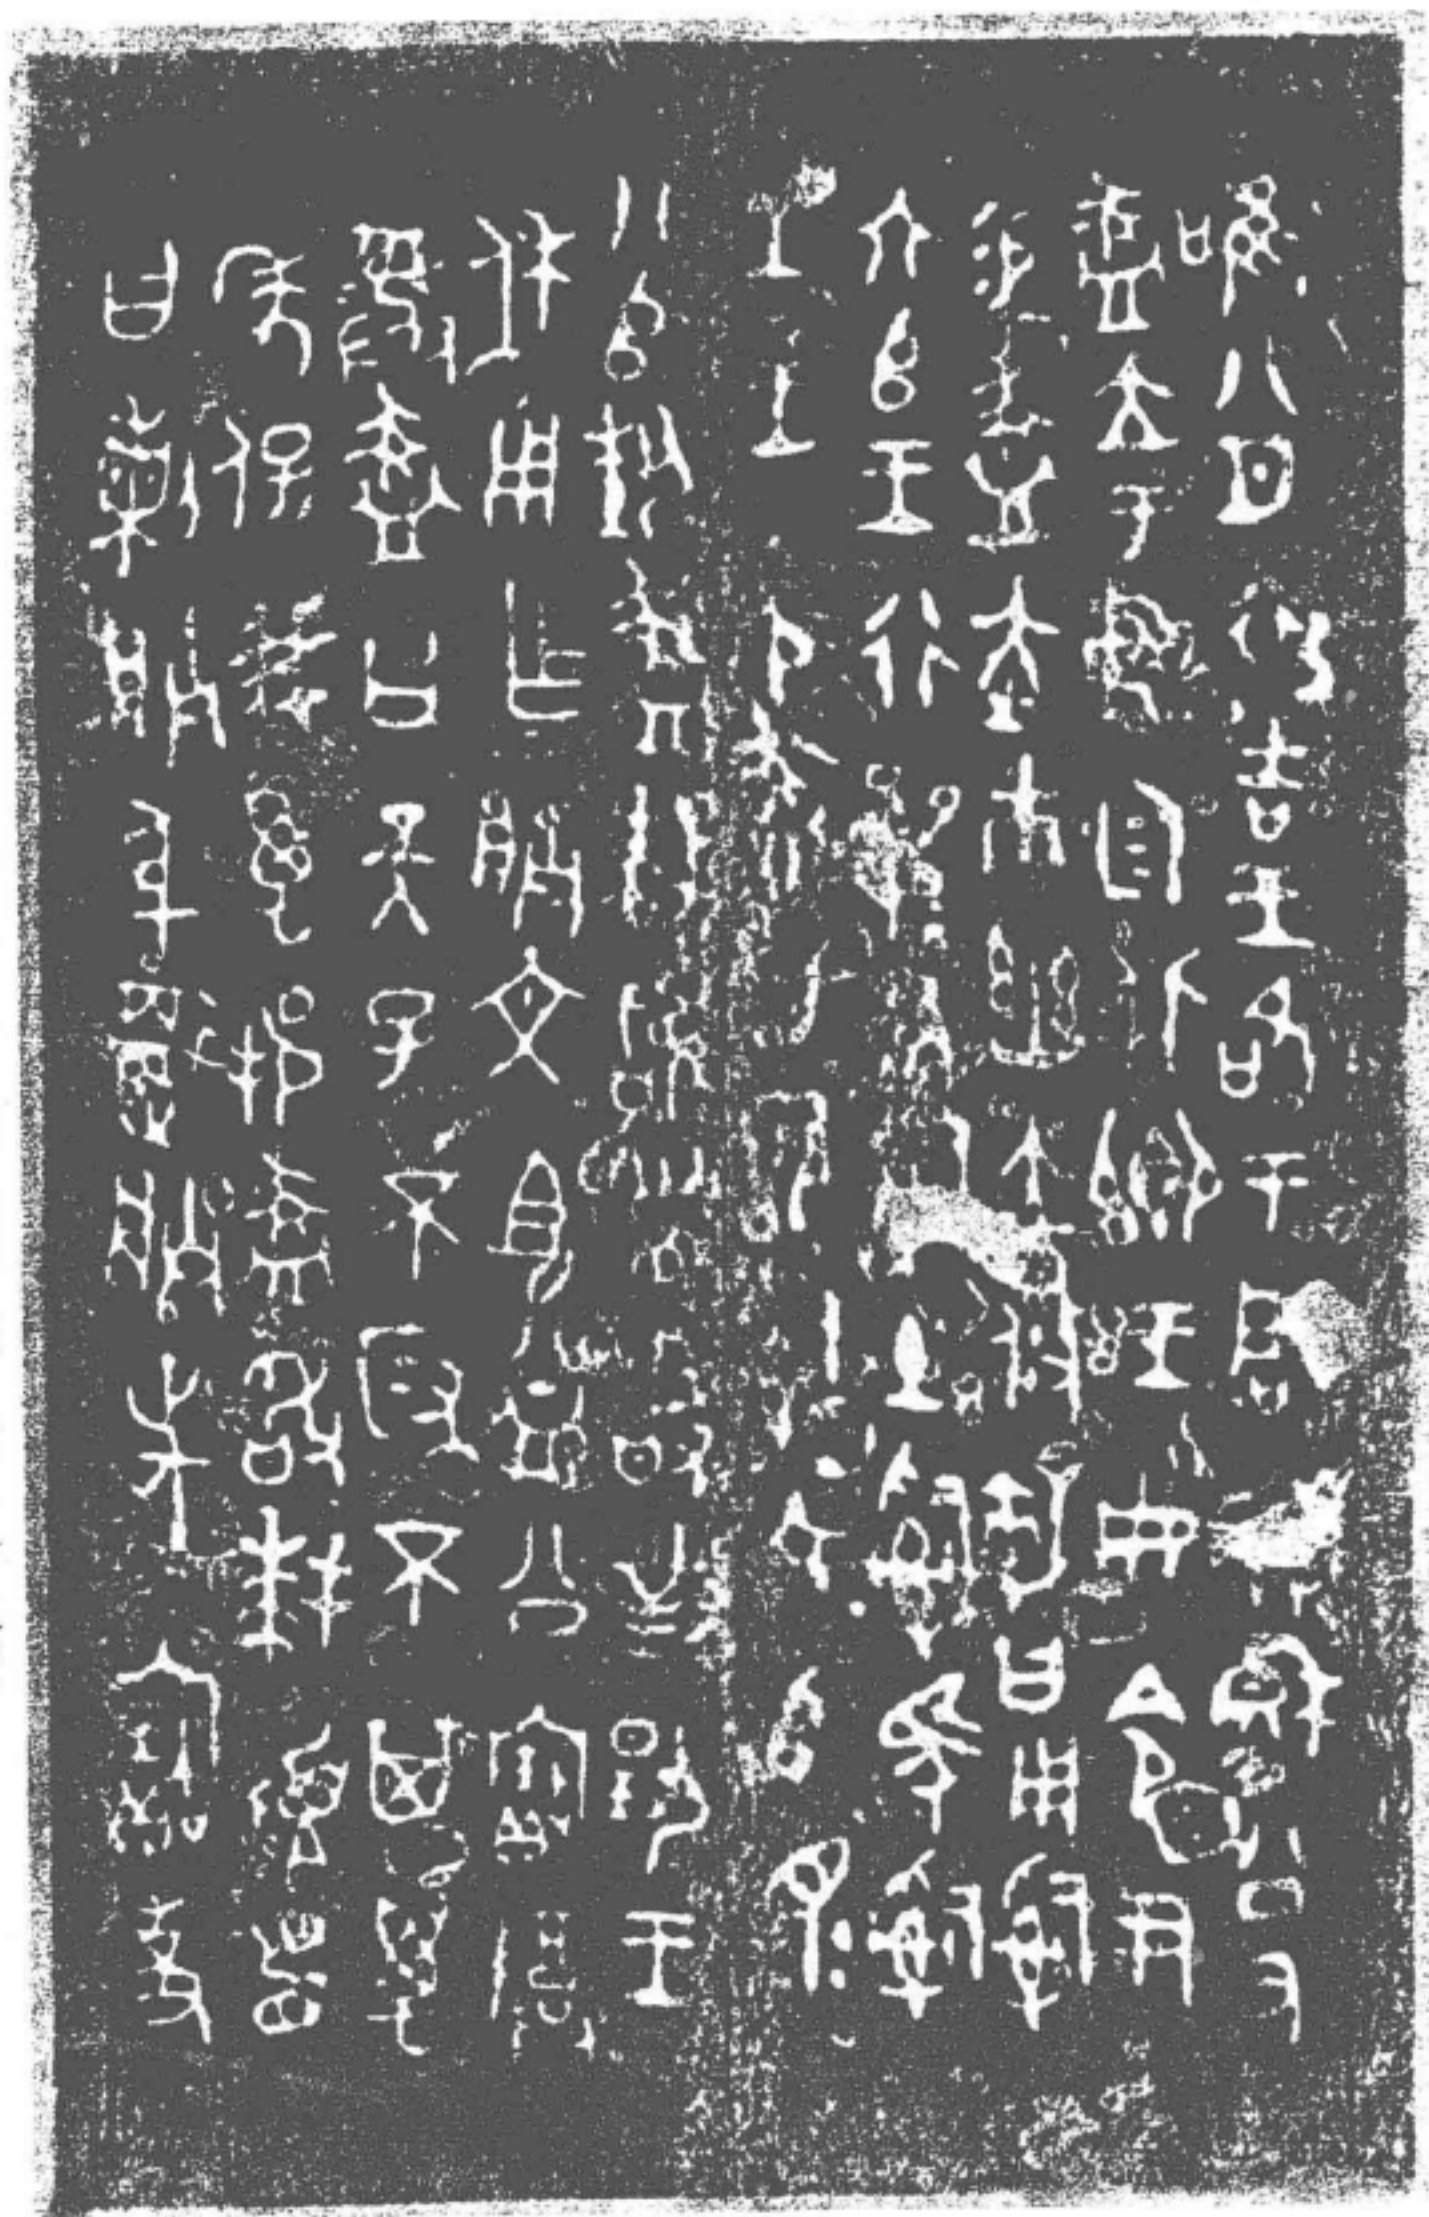 唯八月初吉王各于周廟穆公又
盠立于中廷北鄉王冊令尹易
盠赤巿幽亢攸勒曰用𤔲
六𠂤王行參有𤔲𤔲土𤔲馬𤔲
工王令盠曰𤔲六𠂤眔
八𠂤埶盠拜𩒨首敢對揚王
休用乍朕文且益公寶尊
彝盠曰天子不叚不其萬
年保我萬邦盠敢拜𩒨首
曰剌朕身更朕先寶事